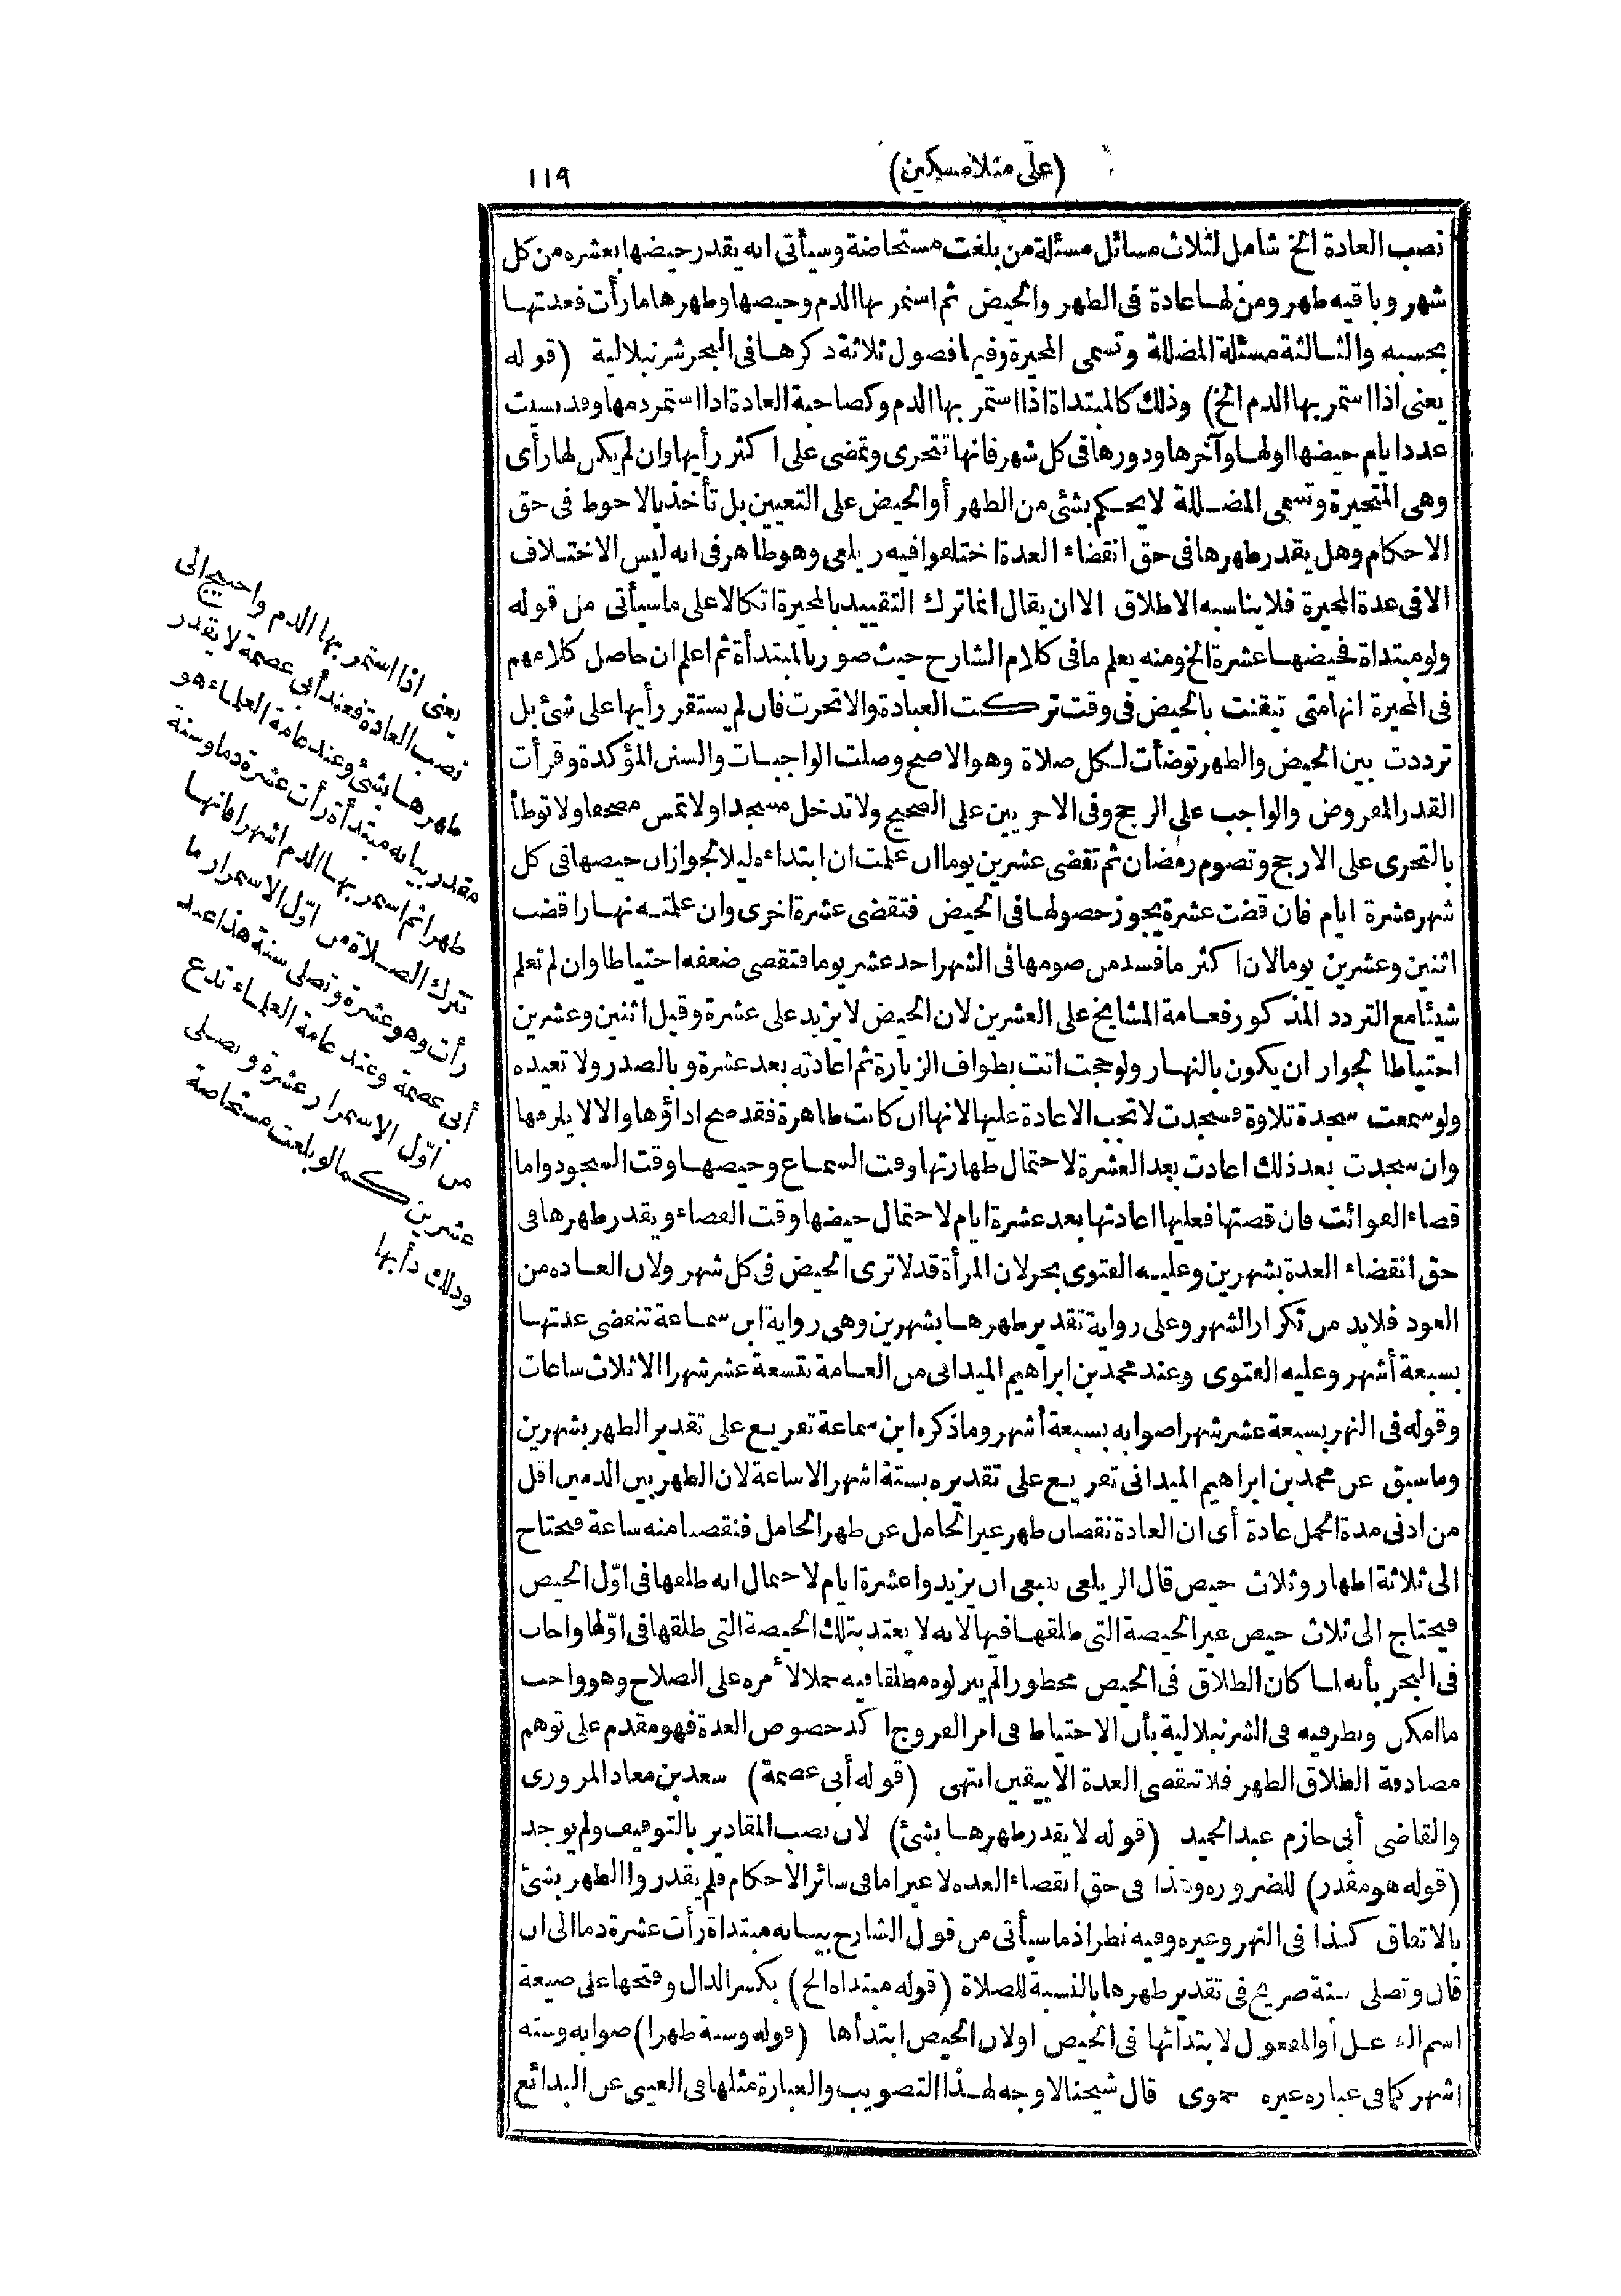 (على منلا مسكين) ١١٩
نصب العادة الخ شامل لثلاث مسائل مسئلة من بلغت مستحاضة وسيأتى انه يقدر حيضها بعشره من كل
شهر وباقيه طهر ومن لها عادة فى الطهر والحيض ثم استمر بها الدم وحيضها وطهرها ما رأت فعدتها
بحسبه والثالثة مسئلة المضللة وتسمى المحيرة وفيها فصول ثلاثة ذكرها فى البحر شرنبلالية (قوله
يعنى اذا استمر بها الدم الخ) وذلك كالمبتداة اذا استمر بها الدم وكصاحبة العادة اذا استمر دمها وقد نسيت
عدد ايام حيضها اولها وآخرها ودورها فى كل شهر فانها تتحرى وتمضى على اكثر رأيها وان لم يكن لها رأى
وهى المتحيرة وتسمى المضللة لا يحكم بشئ من الطهر أو الحيض على التعيين بل تأخذ بالاحوط فى حق
الاحكام وهل يقدر طهرها فى حق انقضاء العدة اختلفوا فيه زيلعى وهو ظاهر فى انه ليس الاختلاف
الا فى عدة المحيرة فلا يناسبه الاطلاق الا ان يقال انما ترك التقييد بالمحيرة اتكالا على ما سيأتى من قوله
ولو مبتداة فحيضها عشرة الخ ومنه يعلم ما فى كلام الشارح حيث صور بالمبتدأة ثم اعلم ان حاصل كلامهم
فى المحيرة انها متى تيقنت بالحيض فى وقت تركت العبادة والا تحرت فان لم يستقر رأيها على شئ بل
ترددت بين الحيض والطهر توضأت لكل صلاة وهو الاصح وصلت الواجبات والسنن المؤكدة وقرأت
القدر المفروض والواجب على الرجح وفى الاخريين على الصحيح ولا تدخل مسجدا ولا تمس مصحفا ولا توطأ
بالتحرى على الارجح وتصوم رمضان ثم تقضى عشرين يوما ان علمت ان ابتداءه ليلا لجواز ان حيضها فى كل
شهر عشرة ايام فان قضت عشرة يجوز حصولها فى الحيض فتقضى عشرة اخرى وان علمته نهارا قضت
اثنين وعشرين يوما لان اكثر ما فسد من صومها فى الشهر احد عشر يوما فتقضى ضعفه احتياطا وان لم تعلم
شيئا مع التردد المذكور فعامة المشايخ على العشرين لان الحيض لا يزيد على عشرة وقيل اثنين وعشرين
احتياطا لجواز ان يكون بالنهار ولو حجت اتت بطواف الزيارة ثم اعادته بعد عشرة وبالصدر ولا تعيده
ولو سمعت سجدة تلاوة فسجدت لا تجب الاعادة عليها لانها ان كانت طاهرة فقد صح اداؤها والا لا يلزمها
وان سجدت بعد ذلك اعادت بعد العشرة لاحتمال طهارتها وقت السماع وحيضها وقت السجود واما
قضاء الفوائت فان قضتها فعليها اعادتها بعد عشرة ايام لاحتمال حيضها وقت القضاء ويقدر طهرها فى
حق انقضاء العدة بشهرين وعليه الفتوى بحر لان المرأة قد لا ترى الحيض فى كل شهر ولان العاده من
العود فلا بد من تكرار الشهر وعلى رواية تقدير طهرها بشهرين وهى رواية ابن سماعة تنقضى عدتها
بسبعة أشهر وعليه الفتوى وعند محمد بن ابراهيم الميدانى من العامة بتسعة عشر شهرا الا ثلاث ساعات
وقوله فى النهر بسبعة عشر شهرا صوابه بسبعة أشهر وما ذكره ابن سماعة تفريع على تقدير الطهر بشهرين
وما سبق عن محمد بن ابراهيم الميدانى تفريع على تقديره بستة اشهر الا ساعة لان الطهر بين الدمين اقل
من ادنى مدة الحمل عادة أى ان العادة نقصان طهر غير الحامل عن طهر الحامل فنقصنا منه ساعة فتحتاج
الى ثلاثة اطهار وثلاث حيض قال الزيلعى ينبغى ان يزيدوا عشرة ايام لاحتمال انه طلقها فى اوّل الحيض
فيحتاج الى ثلاث حيض غير الحيضة التى طلقها فيها لانه لا يعتد بتلك الحيضة التى طلقها فى اوّلها واجاب
فى البحر بأنه لما كان الطلاق فى الحيض محظورا لم ينزلوه مطلقا فيه حملا لأمره على الصلاح وهو واجب
ما امكن ونظر فيه فى الشرنبلالية بأن الاحتياط فى امر الفروج اكد خصوص العدة فهو مقدم على توهم
مصادفة الطلاق الطهر فلا تنقضى العدة الا بيقين انتهى (قوله أبى عصمة) سعد بن معاد المروزى
والقاضى أبى حازم عبد الحميد (قوله لا يقدر طهرها بشئ) لان نصب المقادير بالتوقيف ولم يوجد
(قوله هو مقدر) للضروره وهذا فى حق انقضاء العده لا غير اما فى سائر الاحكام فلم يقدروا الطهر بشئ
بالاتفاق كذا فى النهر وغيره وفيه نظر اذ ما سيأتى من قول الشارح بيانه مبتداة رأت عشرة دما الى ان
قال وتصلى سنة صريح فى تقدير طهرها بالنسبة للصلاة (قوله مبتداه الخ) بكسر الدال وفتحها على صيغة
اسم الفاعل أو المفعول لابتدائها فى الحيض او لان الحيض ابتدأها (قوله وسنة طهرا) صوابه وسته
اشهر كما فى عباره غيره حموى قال شيخنا لا وجه لهذا التصويب والعبارة مثلها فى العينى عن البدائع
يعنى اذا استمر بها الدم واحتيج الى
نصب العادة فعند أبى عصمة لا يقدر
طهرها بشئ وعند عامة العلماء هو
مقدر بيانه مبتدأة رأت عشرة دما وسنة
طهرا ثم استمر بها الدم اشهرا فانها
تترك الصلاة من اوّل الاستمرار ما
رأت وهو عشرة وتصلى سنة هذا عند
أبى عصمة وعند عامة العلماء تدع
من اوّل الاستمرار عشرة وتصلى
عشرين كما لو بلغت مستحاضة
وذلك دأبها